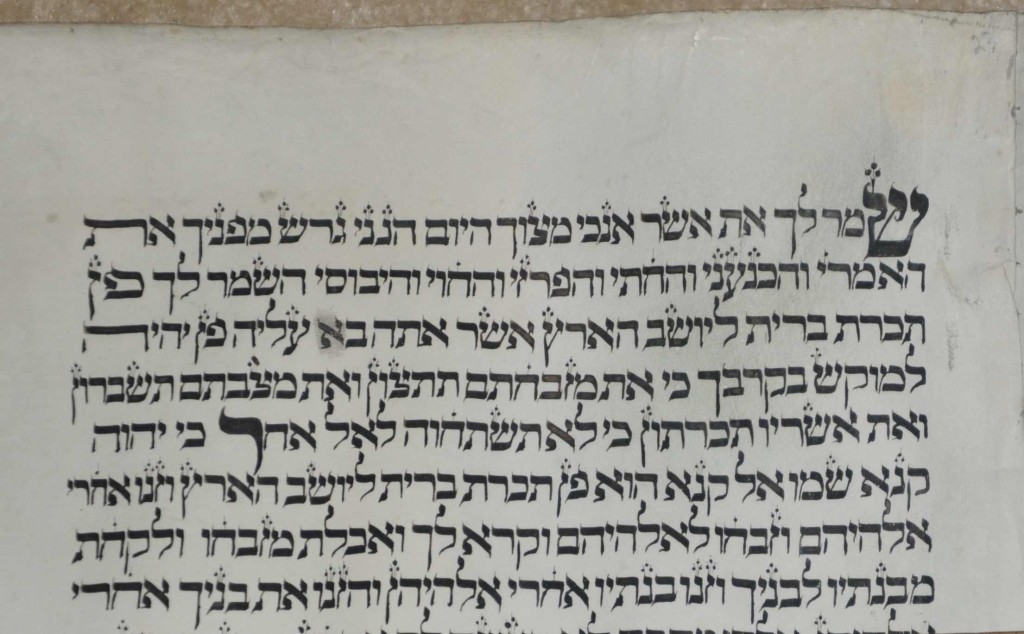 שמר לך את אשר אנכי מצוך היום הנני גרש מפניך את
האמרי והכנעני והחתי והפרזי והחוי והיבוסי השמר לך פן
תכרת ברית ליושב הארץ אשר אתה בא עליה פן יהיה
למוקש בקרבך כי את מזבחתם תתצון ואת מצבתם תשברון
ואת אשריו תכרתון כי לא תשתחוה לאל אחר כי יהוה
קנא שמו אל קנא הוא פן תכרת ברית ליושב הארץ וזנו אחרי
אלהיהם וזבחו לאלהיהם וקרא לך ואכלת מזבחו ולקחת
מבנתיו לבניך וזנו בנתיו אחרי אלהיהן והזנו את בניך אחרי